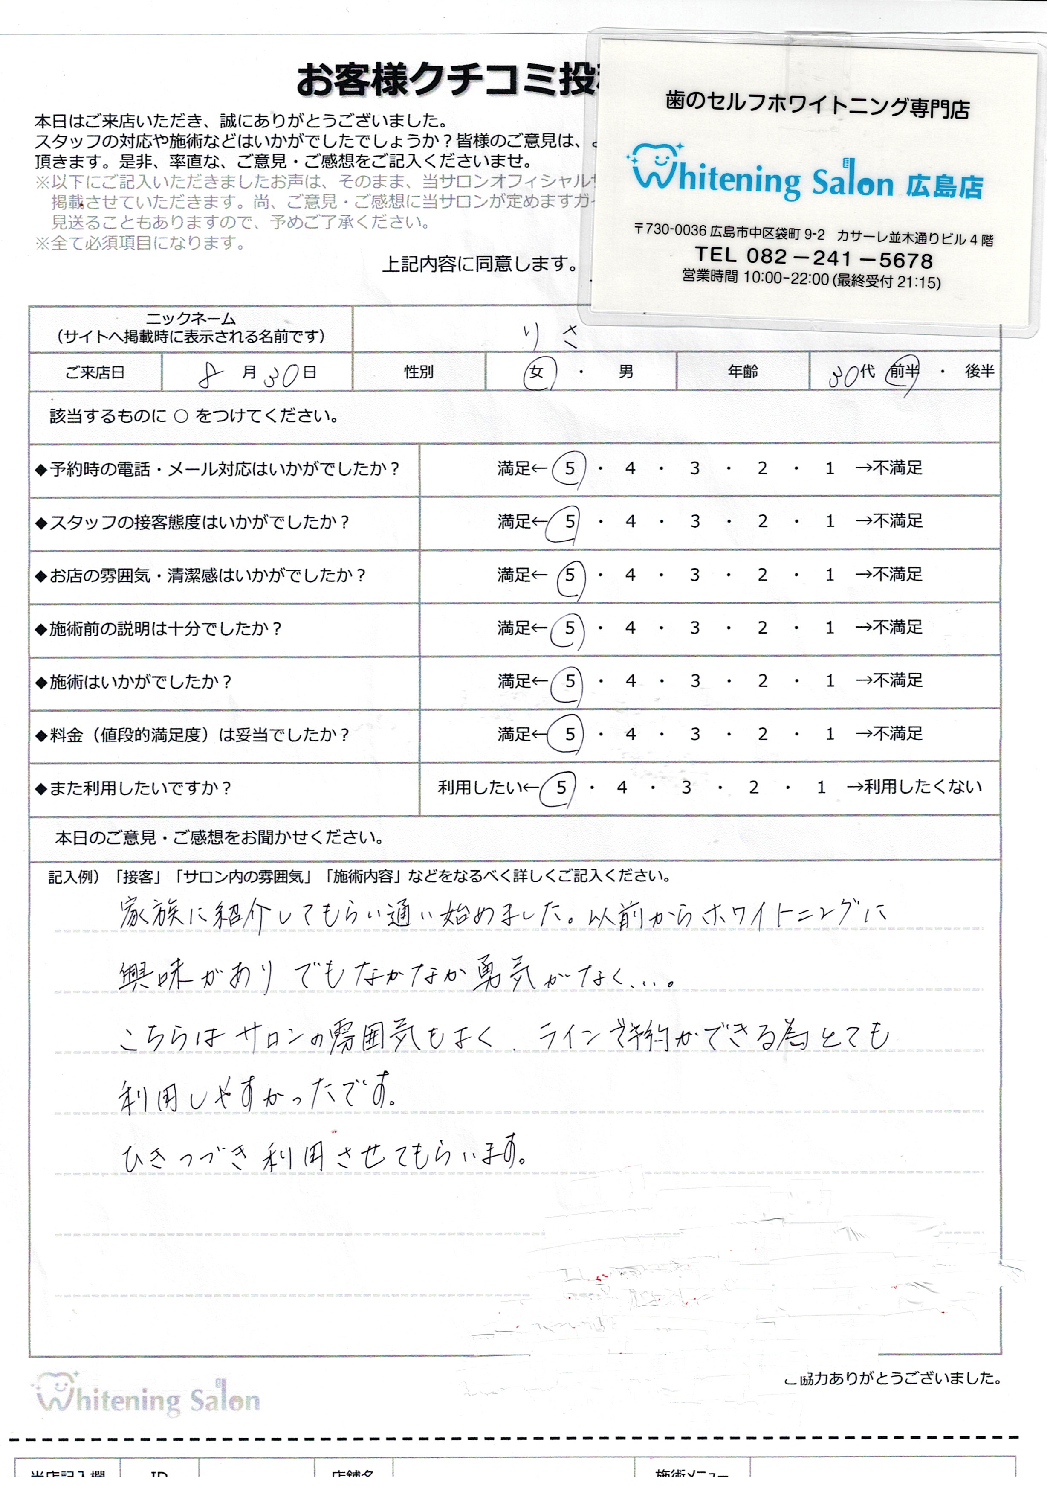 お客様クチコミ投
本日はご来店いただき、誠にありがとうございました。
スタッフの対応や施術などはいかがでしたでしょうか？皆様のご意見は、
頂きます。是非、率直な、ご意見・ご感想をご記入くださいませ。
※以下にご記入いただきましたお声は、そのまま、当サロンオフィシャル
掲載させていただきます。尚、ご意見・ご感想に当サロンが定めますガ
見送ることもありますので、予めご了承ください。
※全て必須項目になります。
上記内容に同意します。
歯のセルフホワイトニング専門店
Whitening Salon 広島店
〒730-0036 広島市中区袋町 9-2 カサーレ並木通りビル 4 階
TEL 082－241－5678
営業時間 10:00-22:00 (最終受付 21:15)
ニックネーム
（サイトへ掲載時に表示される名前です） りさ
ご来店日 8月30日 性別 女 ・ 男 年齢 30代 前半 ・ 後半
該当するものに ○ をつけてください。
◆予約時の電話・メール対応はいかがでしたか？ 満足← 5 ・ 4 ・ 3 ・ 2 ・ 1 →不満足
◆スタッフの接客態度はいかがでしたか？ 満足← 5 ・ 4 ・ 3 ・ 2 ・ 1 →不満足
◆お店の雰囲気・清潔感はいかがでしたか？ 満足← 5 ・ 4 ・ 3 ・ 2 ・ 1 →不満足
◆施術前の説明は十分でしたか？ 満足← 5 ・ 4 ・ 3 ・ 2 ・ 1 →不満足
◆施術はいかがでしたか？ 満足← 5 ・ 4 ・ 3 ・ 2 ・ 1 →不満足
◆料金（値段的満足度）は妥当でしたか？ 満足← 5 ・ 4 ・ 3 ・ 2 ・ 1 →不満足
◆また利用したいですか？ 利用したい← 5 ・ 4 ・ 3 ・ 2 ・ 1 →利用したくない
本日のご意見・ご感想をお聞かせください。
記入例）「接客」「サロン内の雰囲気」「施術内容」などをなるべく詳しくご記入ください。
家族に紹介してもらい通い始めました。以前からホワイトニングに
興味がありでもなかなか勇気がなく...。
こちらはサロンの雰囲気もよく、ラインで予約ができる為とても
利用しやすかったです。
ひきつづき利用させてもらいます。
Whitening Salon
ご協力ありがとうございました。
当店記入欄 ID 店舗名 施術メニュー